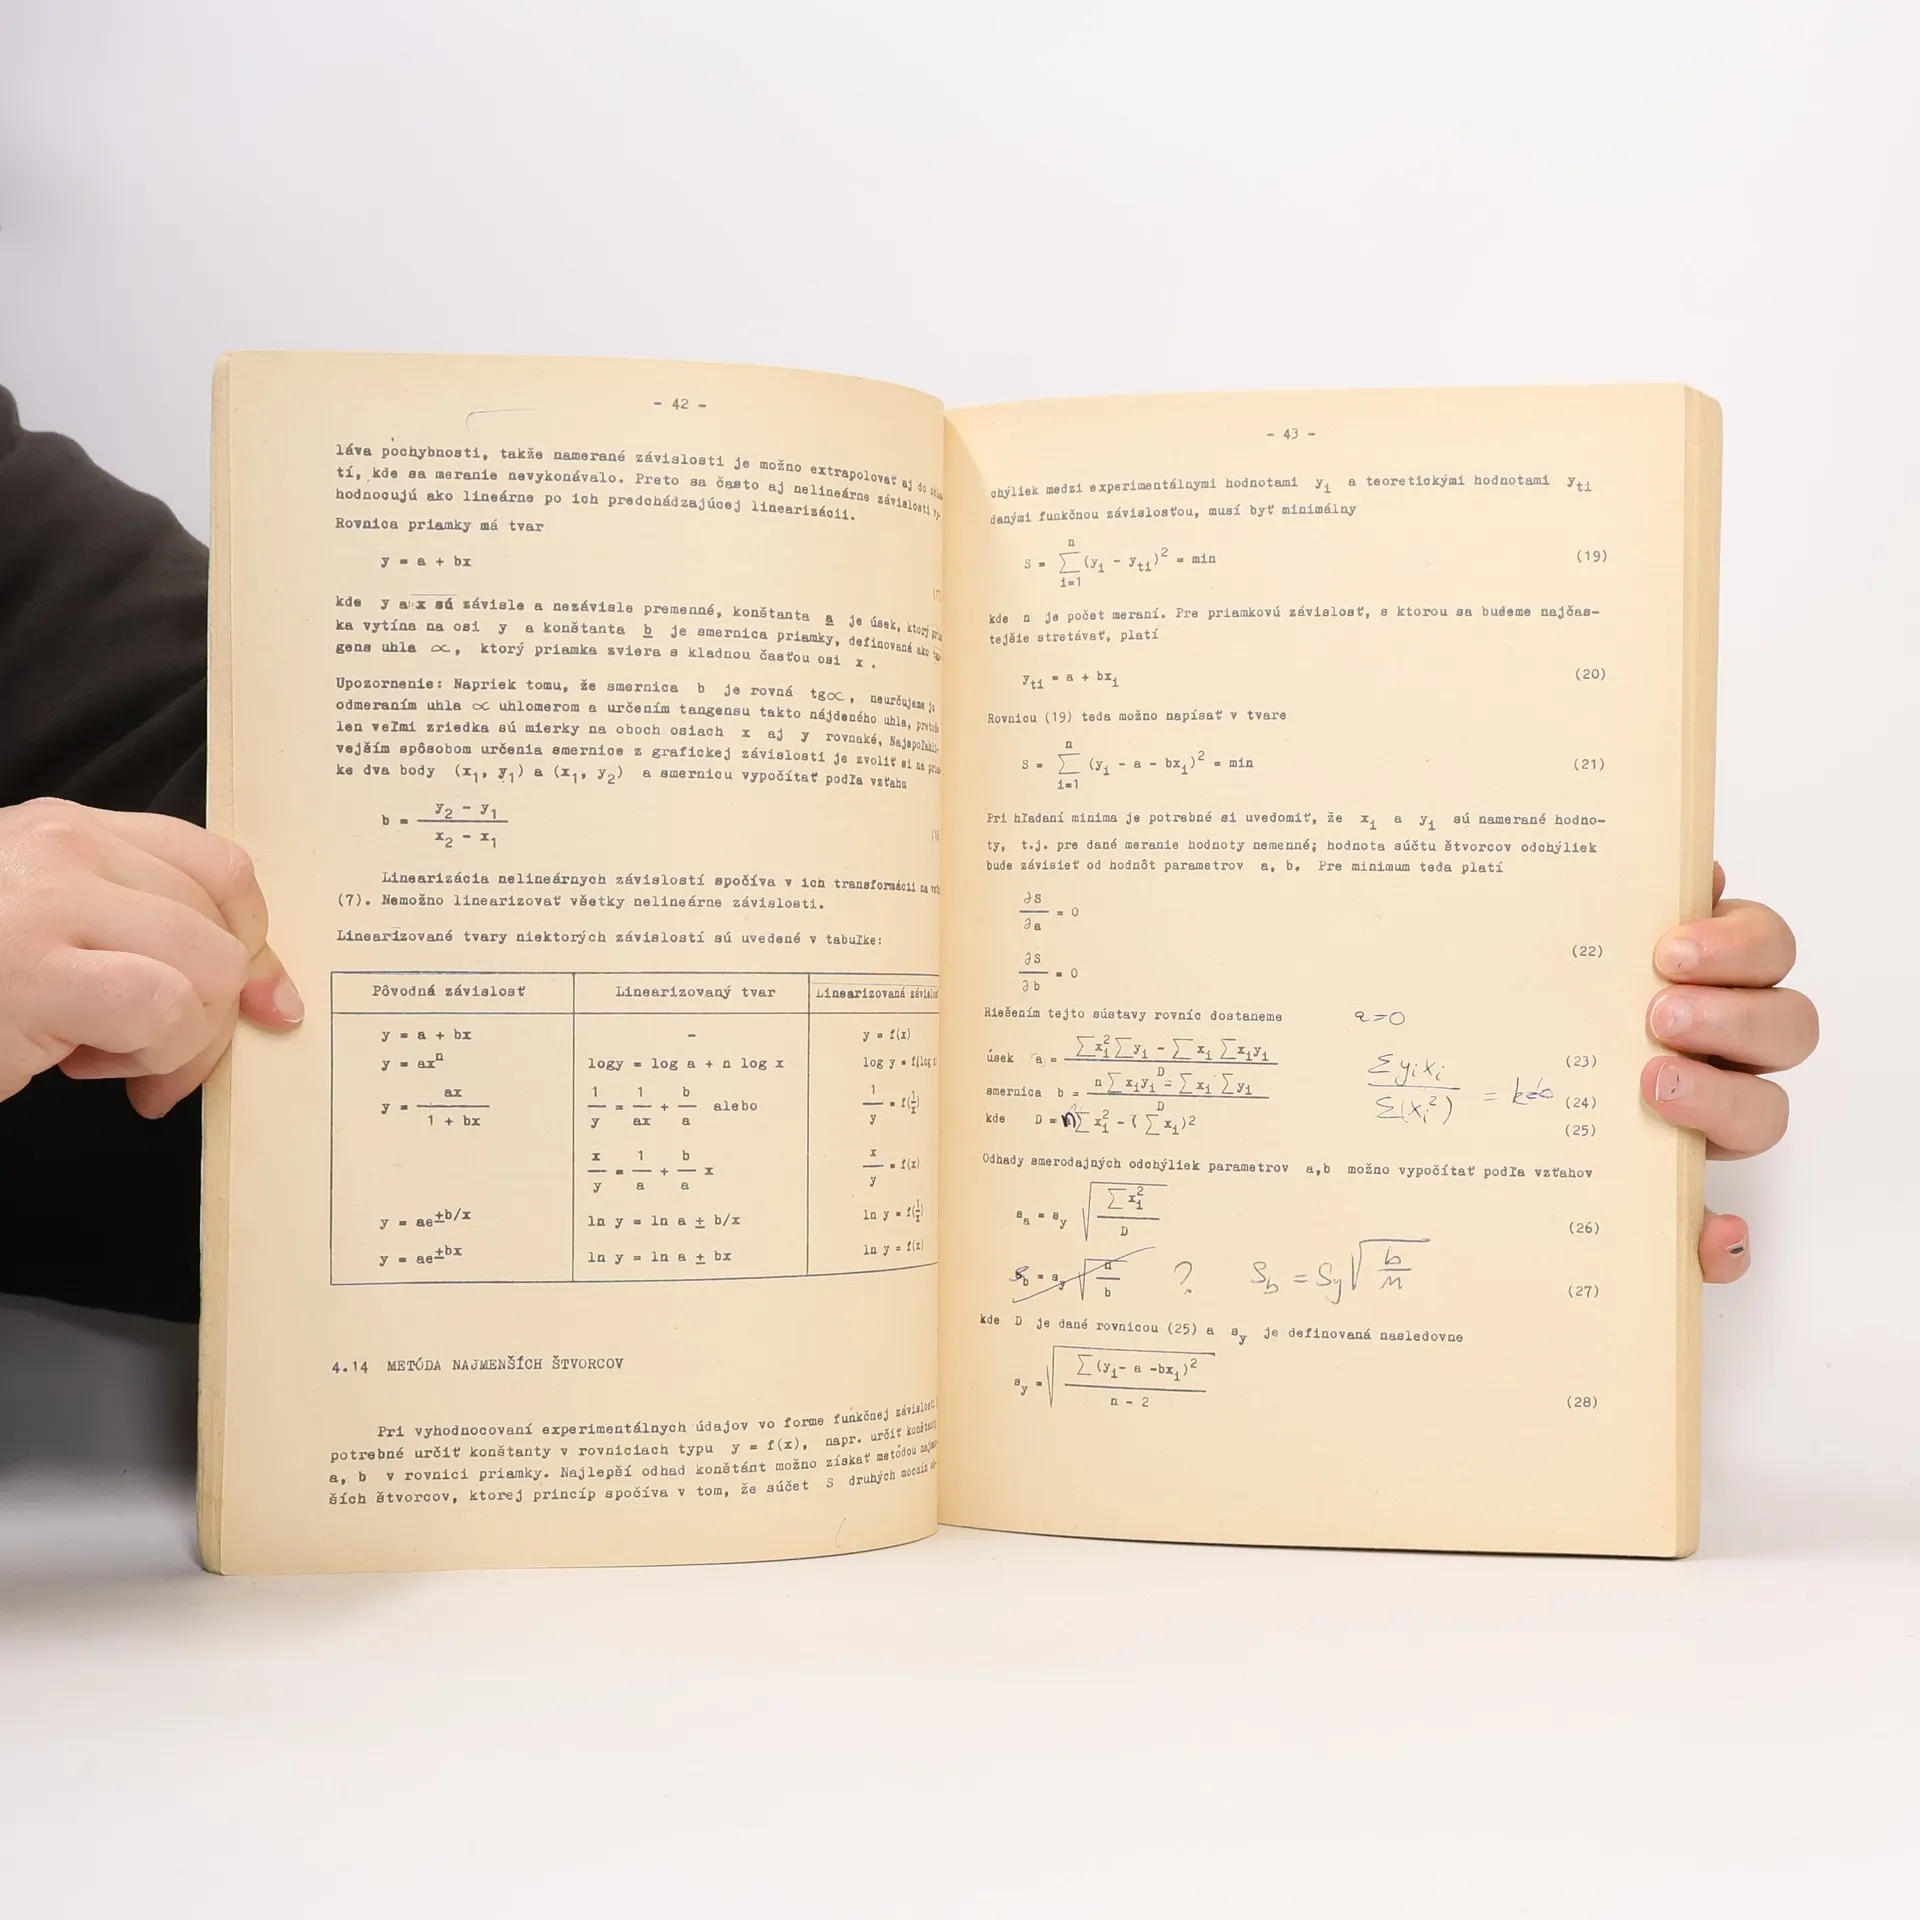 - 42 -
láva pochybnosti, takže namerané závislosti je možno extrapolovať aj do
tí, kde sa meranie nevykonávalo. Preto sa často aj nelineárne závislosti
hodnocujú ako lineárne po ich predchádzajúcej linearizácii.
Rovnica priamky má tvar
y = a + bx
kde y a x sú závisle a nezávisle premenné, konštanta a je úsek, ktorý
ka vytína na osi y a konštanta b je smernica priamky, definovaná ako
gens uhla ∝, ktorý priamka zviera s kladnou časťou osi x .
Upozornenie: Napriek tomu, že smernica b je rovná tg∝, neurčujeme ju
odmeraním uhla ∝ uhlomerom a určením tangensu takto nájdeného uhla,
len veľmi zriedka sú mierky na oboch osiach x aj y rovnaké,
vejším spôsobom určenia smernice z grafickej závislosti je zvoliť si na
ke dva body (x₁, y₁) a (x₁, y₂) a smernicu vypočítať podľa vzťahu
b = (y₂ - y₁) / (x₂ - x₁)
Linearizácia nelineárnych závislostí spočíva v ich transformácii na
(7). Nemožno linearizovať všetky nelineárne závislosti.
Linearizované tvary niektorých závislostí sú uvedené v tabuľke:
Pôvodná závislosť Linearizovaný tvar Linearizovaná
y = a + bx - y = f(x)
y = axⁿ logy = log a + n log x log y = f(log
y = ax / (1 + bx) 1/y = 1/ax + b/a alebo 1/y = f(1/x)
x/y = 1/a + b/a x x/y = f(x)
y = ae^(±b/x) ln y = ln a ± b/x ln y = f(1/x)
y = ae^(±bx) ln y = ln a ± bx ln y = f(x)
4.14 METÓDA NAJMENŠÍCH ŠTVORCOV
Pri vyhodnocovaní experimentálnych údajov vo forme funkčnej
potrebné určiť konštanty v rovniciach typu y = f(x), napr. určiť
a, b v rovnici priamky. Najlepší odhad konštánt možno získať metódou
ších štvorcov, ktorej princíp spočíva v tom, že súčet S druhých mocnín
- 43 -
chýliek medzi experimentálnymi hodnotami yᵢ a teoretickými hodnotami yₜᵢ
danými funkčnou závislosťou, musí byť minimálny
S = n∑i=1 (yᵢ - yₜᵢ)² = min (19)
kde n je počet meraní. Pre priamkovú závislosť, s ktorou sa budeme najčas-
tejšie stretávať, platí
yₜᵢ = a + bxᵢ (20)
Rovnicu (19) teda možno napísať v tvare
S = n∑i=1 (yᵢ - a - bxᵢ)² = min (21)
Pri hľadaní minima je potrebné si uvedomiť, že xᵢ a yᵢ sú namerané hodno-
ty, t.j. pre dané meranie hodnoty nemenné; hodnota súčtu štvorcov odchýliek
bude závisieť od hodnôt parametrov a, b. Pre minimum teda platí
∂S/∂a = 0
(22)
∂S/∂b = 0
Riešením tejto sústavy rovníc dostaneme a=0
úsek a = (∑xᵢ² ∑yᵢ - ∑xᵢ ∑xᵢyᵢ) / D (23)
smernica b = (n∑xᵢyᵢ - ∑xᵢ ∑yᵢ) / D ∑yᵢxᵢ / ∑(xᵢ²) = (24)
kde D = n∑xᵢ² - (∑xᵢ)² (25)
Odhady smerodajných odchýliek parametrov a,b možno vypočítať podľa vzťahov
sₐ = s_y √(∑xᵢ² / D) (26)
s_b = s_y √(n / b) ? S_b = S_y √(b / n) (27)
kde D je dané rovnicou (25) a s_y je definovaná nasledovne
s_y = √(∑(yᵢ - a -bxᵢ)² / (n - 2)) (28)